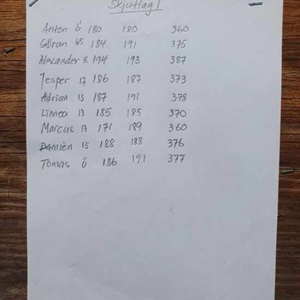 Skjutlag 1
Anton ö 180 180 360
Göran 65 184 191 375
Alexander S 194 193 387
Jesper 17 186 187 373
Adrian 13 187 191 378
Linnea 13 185 185 370
Marcus 13 171 189 360
Damién 15 188 188 376
Tomas Ö 186 191 377